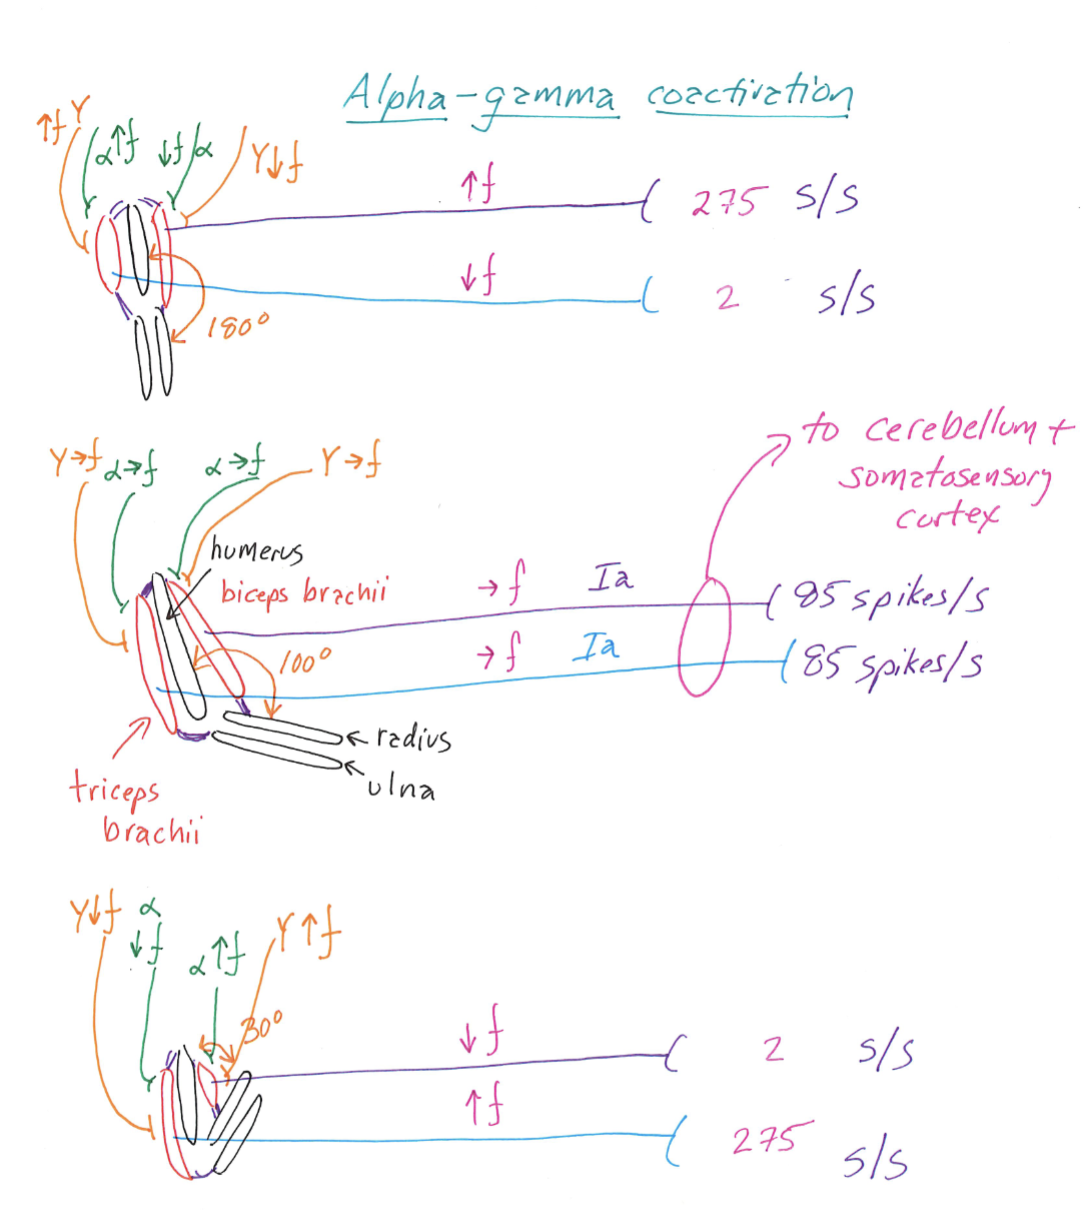 Alpha-gamma coactivation
↑f γ
α↑f ↓f α
γ↓f
↑f 275 s/s
↓f 2 s/s
180°
to cerebellum +
somatosensory
cortex
γ→f α→f α→f γ→f
humerus
biceps brachii
→f Ia 85 spikes/s
→f Ia 85 spikes/s
100°
radius
ulna
triceps
brachii
γ↓f α
↓f
α↑f γ↑f
30°
↓f 2 s/s
↑f 275 s/s